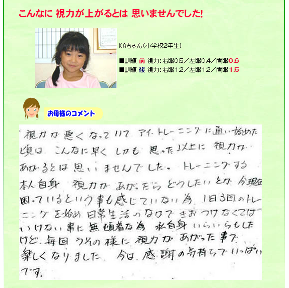 こんなに 視力が上がるとは 思いませんでした!
ちゃん(小学校2年生)
■訓練 前 視力:右眼0.5/左眼0.4/両眼0.6
■訓練 後 視力:右眼1.2/左眼1.2/両眼1.5
お母様のコメント
視力が悪くなっていて アイ・トレーニングに通い始めた
頃は こんなに早く しかも 思った以上に 視力が
あがるとは思いませんでした。 トレーニングする
本人自身 視力が あがったら どうしたい とか 今現在
困っているという事も感じていない為 1日3回のトレ
ーニングを始め 日常生活のなかで きをつけなくては
いけない 事に 無頓着な為 私自身 いらいらもした
けど 毎回 の様に 視力が あがった 事で
楽しくなりました。今は、感謝の気持ちで いっぱい
です。